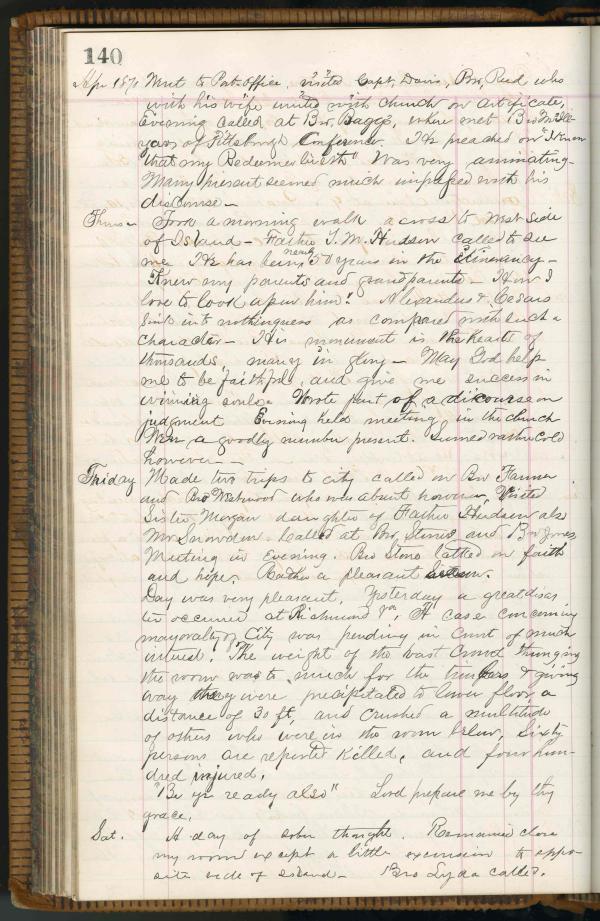 140
Apr 1870 Went to Post-Office, visited Capt. Davis, Bro, Reed who
with his wife united with church on certificate,
Evening called at Bro. Baggs, where met Bro McIll-
yars of Pittsburgh Conference. He preached on "I know
that my Redeemer liveth" Was very animating-
Many present seemed much impressed with his
discourse-
Thurs- Took a morning walk across to West side
of Island- Father T. M. Hudson called to see
me. He has been nearly 50 years in the itinerancy-
Knew my parents and grandparents- How I
love to look upon him! Alexanders & Cesars
sink into nothingness as compared with such a
character- His monument is the hearts of
thousands, many in glory- May God help
me to be faithful, and give me success in
winning souls. Wrote part of a dicourse on
judgment Evening held meeting in the church
a goodly number present. Seemed rather cold
however-
Friday Made two trips to city called on Bro Farmer
and Bro Westwood who was absent however, Visited
Sister Morgan daughter of Father Hudson also
Mr Snowden. Called at Bro, Stones and Bro Jones
Meeting in evening. Bro Stone talked on faith
and hope. Rather a pleasant season.
Day was very pleasant. Yesterday a great disas
ter occured at Richmond Va, A case concerning
mayoralty of City was pending in Court of much
interest. The weight of the vast crowd thronging
the room was to much for the timbers & giving
way they were precipitated to lower floor a
distance of 30 ft, and crushed a multitude
of others who were in the room below, Sixty
persons are reported killed, and four hun-
dred injured.
"Be ye ready also" Lord prepare me by thy
grace.
Sat. A day of sober thought. Remained close
my room except a little excursion to oppo-
site side of island- Bro Lyda called.